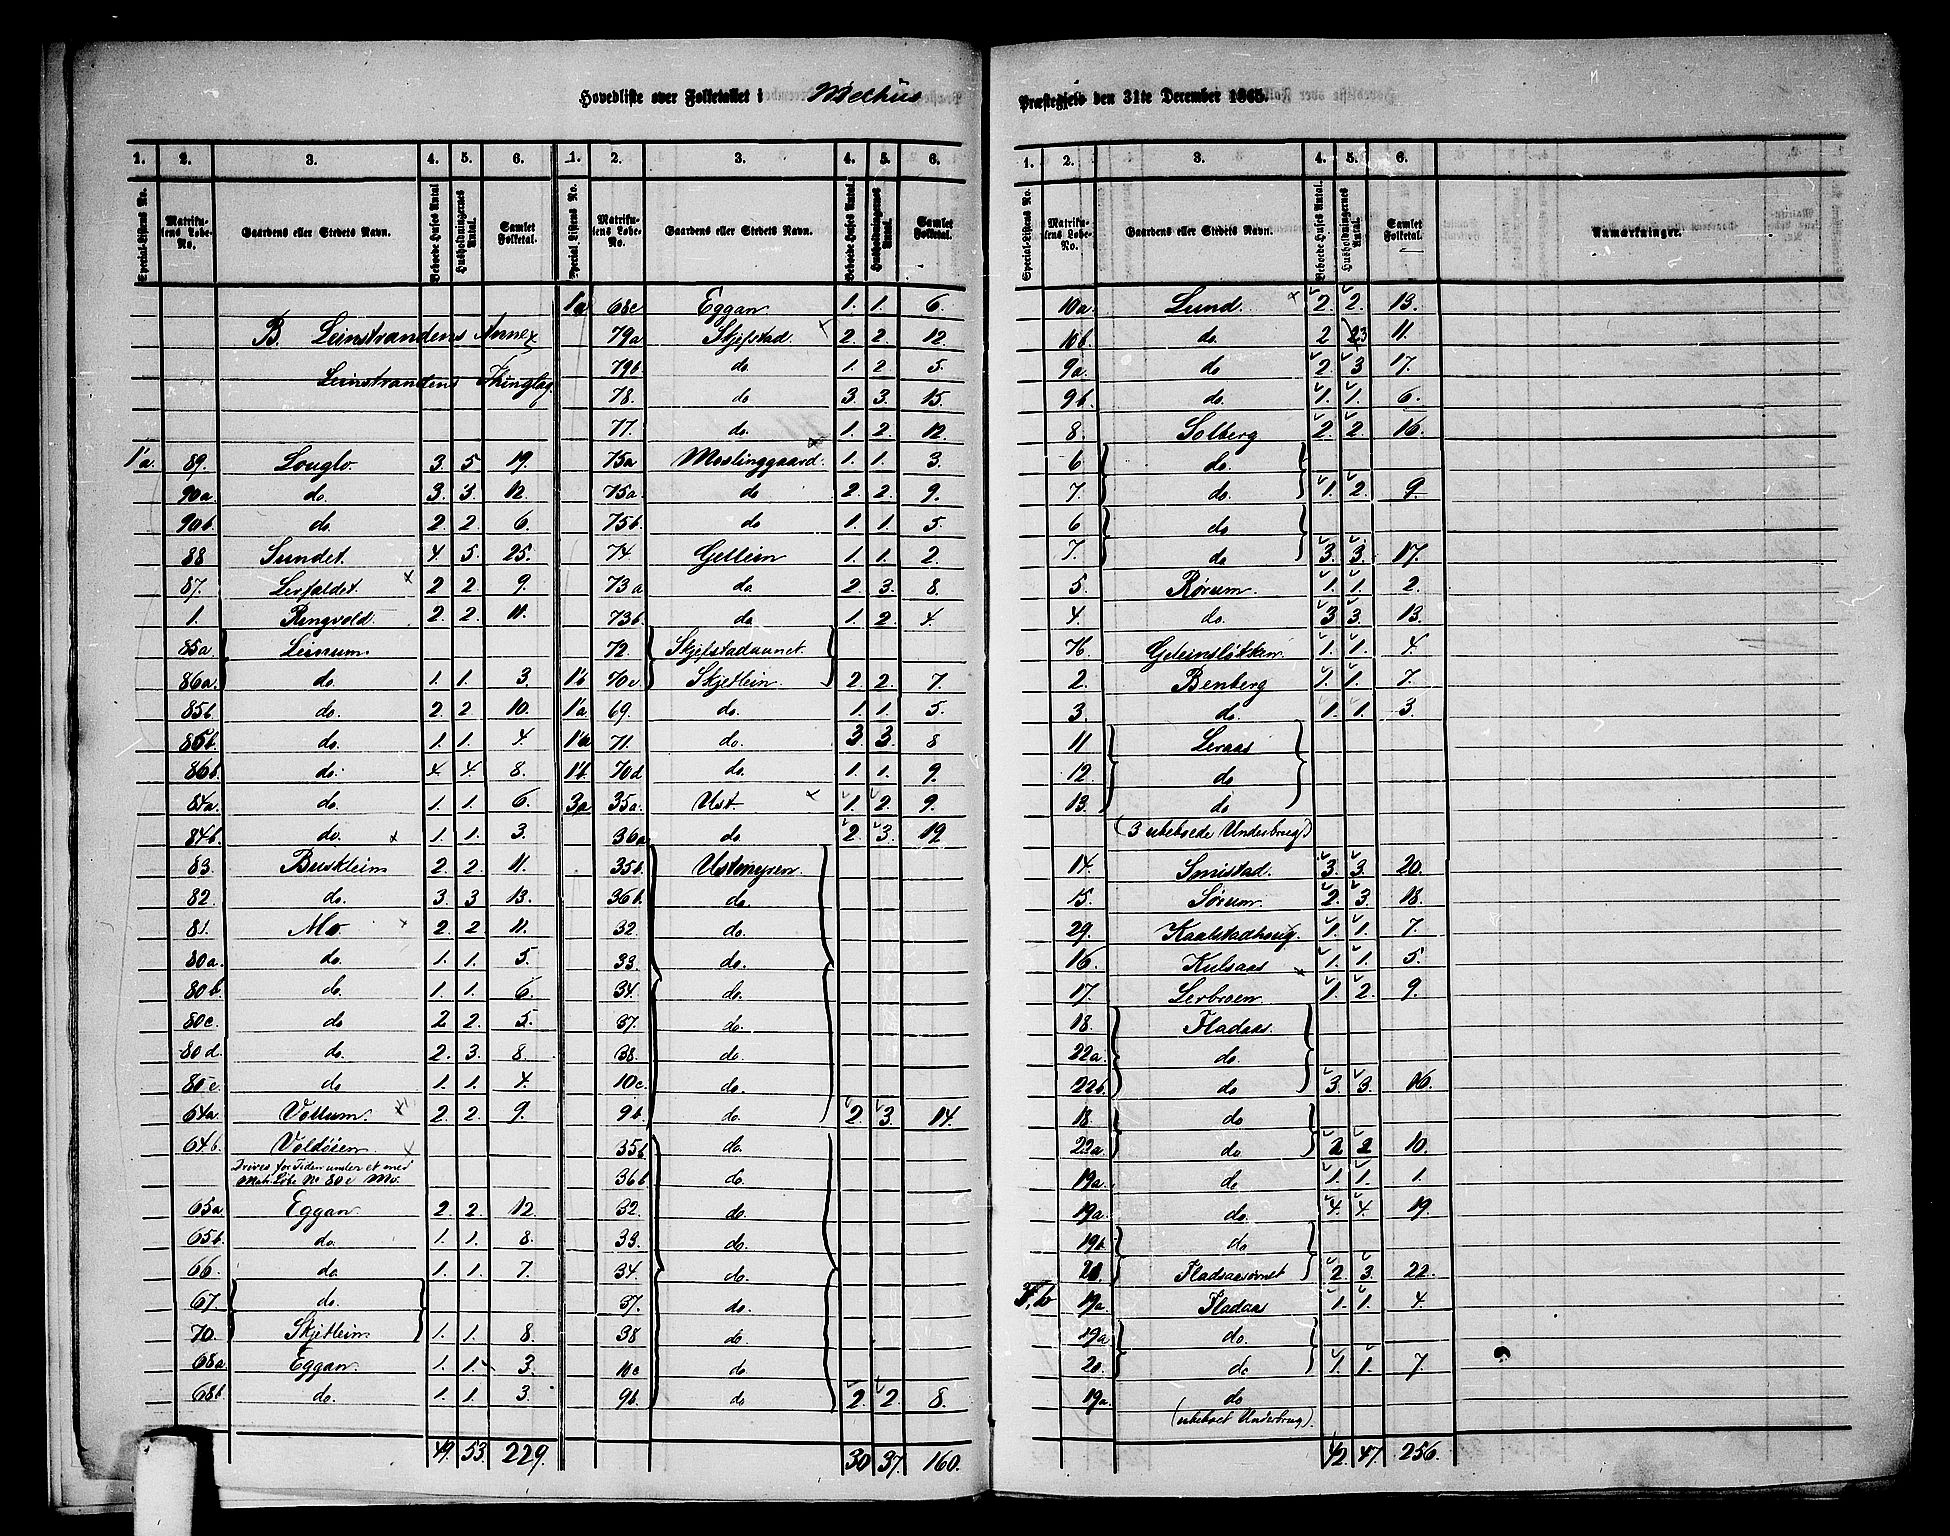 Hovedliste over Folketallet i Melhus Præstegjeld den 31te December 1865.
1. 2. 3. 4. 5. 6. 1. 2. 3. 4. 5. 6.
Special-Listens No. Matrikulens Løbe-No. Gaardens eller Stedets Navn. Beboede Huses Antal. Husholdningernes Antal. Samlet Folketal. Special-Listens No. Matrikulens Løbe-No. Gaardens eller Stedets Navn. Beboede Huses Antal. Husholdningernes Antal. Samlet Folketal.
B. Leinstrandens Annex
Leinstrandens Thinglag
1a. 89. Louglo 3. 5 19.
90a. do. 3. 3. 12.
90b. do. 2. 2. 6.
88 Sundet. 4. 5. 25.
87. Lerfaldet 2 2. 9.
1. Ringvold. 2. 2. 11.
85a. Leinum
86a. do. 1. 1. 3.
85b. do. 2. 2 10.
85b. do. 1. 1. 4.
86b. do. 4. 4. 8.
84a. do. 1. 1. 6.
84b. do. 1. 1. 3.
83. Buskleim 2. 2. 11.
82. do. 3. 3 13.
81. Mo. 2. 2 11.
80a. do. 1. 1. 5.
80b. do. 1. 1. 6.
80c. do 2 2. 5.
80d. do. 2. 3. 8.
80e. do 1. 1. 4.
64a. Vollum. 2. 2. 9.
64b. Voldøien
Drives for Tiden under et med
Matr. Løbe No 80c Mo.
65a Eggan 2. 2. 12.
65b. do. 1. 1. 8.
66 do. 1. 1. 7.
67. do.
70. Skjetlein 1. 1. 8.
68a. Eggan. 1. 1. 3.
68b. do. 1. 1. 3
49. 53. 229.
1a 68c Eggan 1. 1. 6.
79a Skjefstad. 2. 2. 12.
79b. do. 1. 2 5.
78. do 3. 3. 15.
77. do. 1. 2 12.
75a Moslinggaard. 1. 1. 3.
75a. do 2. 2. 9.
75b. do 1. 1. 5.
74. Gellein 1. 1. 2.
73a do. 2. 3. 8.
73b. do 1. 2. 4.
72. Skjefstadaunet.
1b 70c Skjetlein 2. 2. 7.
1a 69. do. 1. 1. 5.
1a 71. do. 3. 3. 8
1b. 70d do. 1. 1. 9.
3a 35a. Ust. 1. 2. 9.
36a do. 2. 3. 19
35b. Ustmyren.
36b. do.
32. do.
33. do.
34. do.
37. do.
38. do.
10c. do.
9b. do. 2. 3. 14.
35b do.
36b do.
32. do.
33. do.
34. do.
37. do.
38 do.
10c do.
9b. do 2. 2. 8.
30 37. 160.
1. 2. 3. 4. 5. 6.
Special-Listens No. Matrikulens Løbe-No. Gaardens eller Stedets Navn. Beboede Huses Antal. Husholdningernes Antal. Samlet Folketal. Anmærkninger.
10a. Lund. 2. 2. 13.
10b. do. 2 3 11.
9a. do 2. 3 17.
9b. do. 1. 1. 6.
8. Solberg 2. 2. 16.
6 do.
7. do. 1. 2. 9.
6 do
7. do 3. 3. 17.
5. Rørum. 1. 1. 2.
4. do. 3 3. 13.
76. Geleinsløkken. 1. 1. 4.
2. Benberg 1. 1. 7.
3. do. 1. 1. 3.
11 Leraas
12. do
13. do
(3 ubeboede Underbrug)
14. Smistad. 3. 3. 20.
15. Sørum. 2. 3. 18.
29. Kaalstadhoug. 1. 1. 7.
16. Kulsaas 1. 1. 5.
17. Lerbroen 1. 2. 9.
18. Fladaas.
22a. do.
22b. do 3. 3. 16.
18. do
22a. do. 2 2 10.
19a. do 1. 1. 1.
19a. do. 4. 4. 19.
19b. do
20. Fladsaasørnet 2. 3. 22.
19a. Fladaas 1. 1. 4.
19a do.
20. do 1. 1. 7.
19a. do
(ubeboet Underbrug).
42. 47. 256.